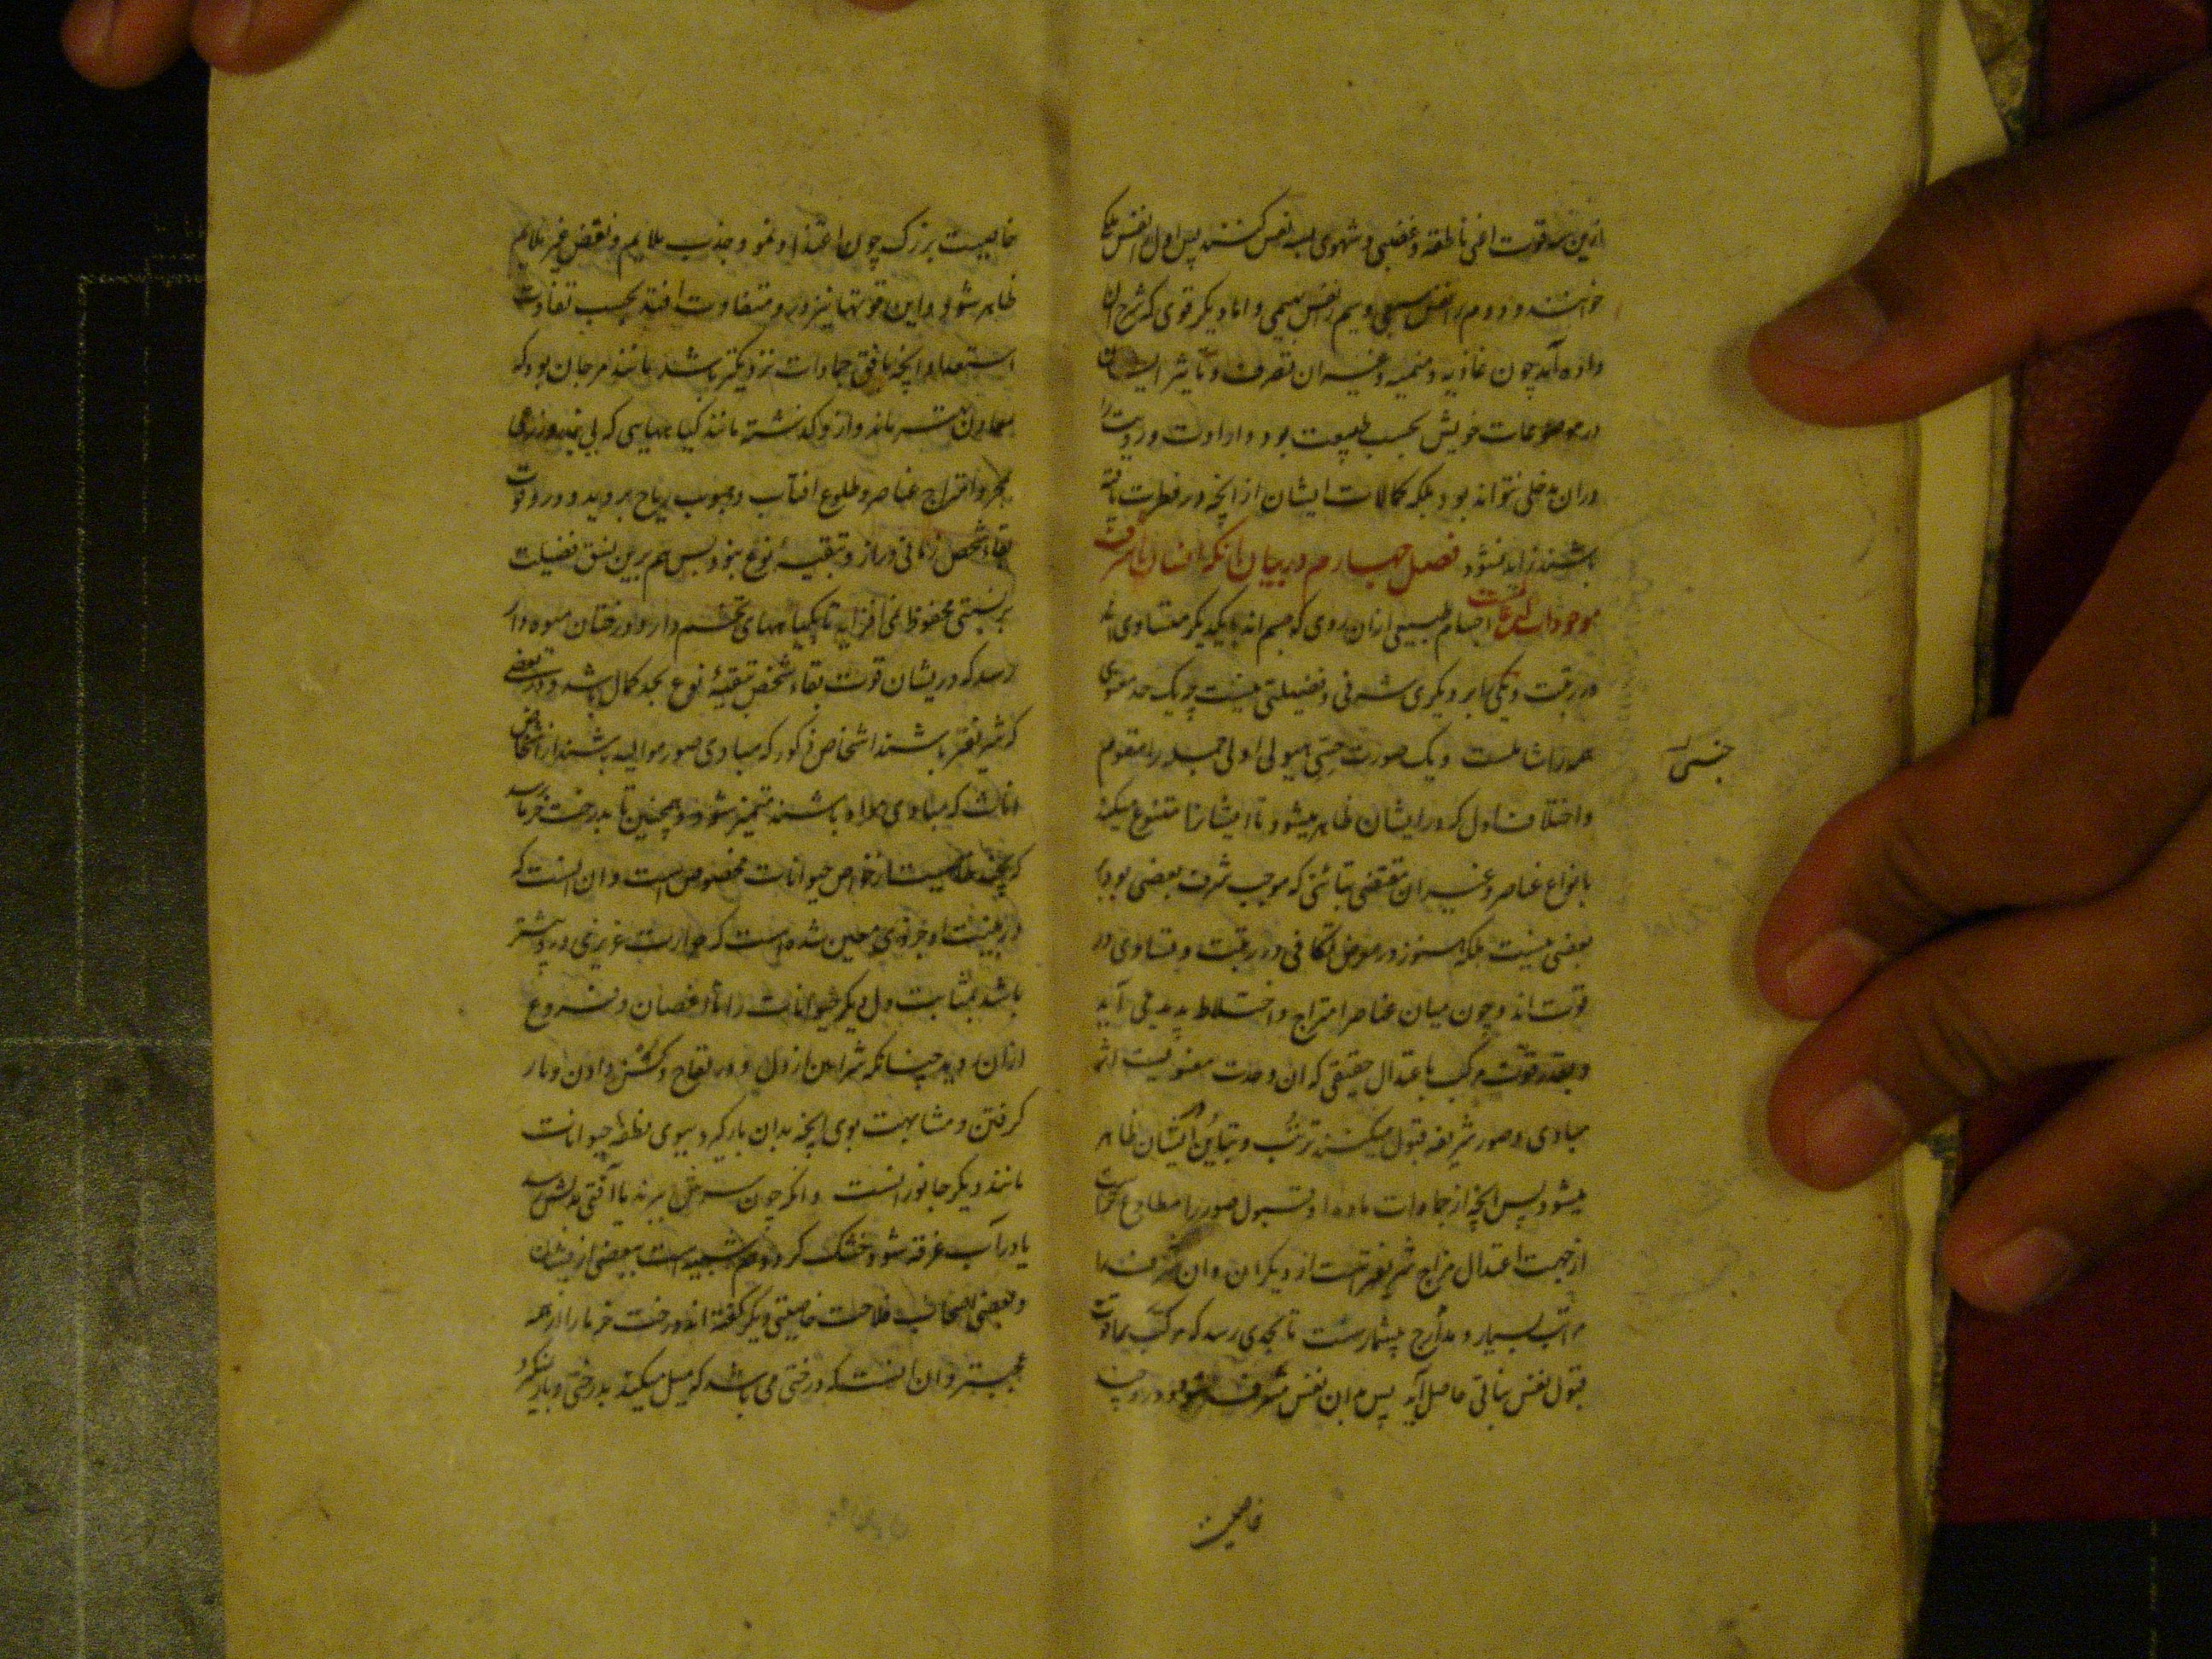 ازین سه قوت اعنی ناطقه و غضبی و شهوی بسه نفس کنند پس اول را نفس ملکی
خوانند و دوم را نفس سبعی و سیم را نفس بهیمی و اما دیگر قوی که شرح ان
داده آید چون غاذیه و منمیه و غیر ان تصرف و تأثیر ایشان
در موضوعات خویش بحسب طبیعت بود و ارادت و رویت را
دران مدخلی نتواند بود بلکه کمالات ایشان از انچه در فطرت یافته
باشند زاید نشود فصل چهارم در بیان انکه انسان اشرف
موجودات این عالمست اجسام طبیعی ازان روی که جسم اند با یکدیگر متساوی اند
در رتبت و یکی را بر دیگری شرفی و فضیلتی نیست چه یک حد معنوی
همه را شاملست و یک صورت جنسی هیولی اولی جمله را مقوم
جنسی
و اختلاف اول که در ایشان ظاهر میشود تا ایشانرا متنوع میکند
بانواع عناصر و غیر ان مقتضی تباینی که موجب شرف بعضی بود بر
بعضی نیست بلکه هنوز در معرض تکافی در رتبت و تساوی در
قوت اند و چون میان عناصر امتزاج و اختلاط پدید می آید
و بقدر قوت مرکب باعتدال حقیقی که ان وحدت معنویست اثر
مبادی و صور شریفه قبول میکنند ترتب و تباین در ایشان ظاهر
میشود پس انچه از جمادات ماده او قبول صور را مطاوع تر است
از جهت اعتدال مزاج شریفتر است از دیگران و ان شرف را
مراتب بسیار و مدارج بیشمارست تا بحدی رسد که مرکب را قوت
قبول نفس نباتی حاصل آید پس بدان نفس مشرف شود و درو چند
خاصیت
خاصیت بزرک چون اغتذا و نمو و جذب ملایم و نفض غیر ملایم
ظاهر شود و این قوتها نیز درو متفاوت افتد بحسب تفاوت
استعداد و انچه بافق جمادات نزدیکتر باشد مانند مرجان بود که
بمعادن بهتر ماند و ازو کذشته مانند کیاههایی که بی تخم و زرع
بمجرد امتزاج عناصر و طلوع افتاب و هبوب ریاح بروید و درو قوت
بقاء شخص زمانی دراز و تبقیهٔ نوع نبود پس هم برین نسق فضیلت
بر نسبتی محفوظ می افزاید تا بکیاههای تخم دار و درختان میوه دار
رسد که در یشان قوت بقاء شخص و تبقیهٔ نوع بحد کمال باشد و در بعضی
که شریفتر باشند اشخاص ذکور که مبادی صور موالید باشند از اشخاص
اناث که مبادی مواد باشند متمیز شود و همچنین تا بدرخت خرما رسد
که بچند خاصیت از خواص حیوانات مخصوص است و ان انست که
در بنیت او جزوی معین شده است که حرارت غریزی درو بیشتر
باشد بمثابت دل دیگر حیوانات را تا اغصان و فروع
ازان روید چنانکه شرایین از دل و در لقاح و کشن دادن و بار
کرفتن و مشابهت بوی انچه بدان بار کیرد ببوی نطفهٔ حیوانات
مانند دیکر جانورانست و انکه چون سرش ببرند یا آفتی بدلش رسد
یا در آب غرقه شود خشک کردد هم شبیه است ببعضی ازیشان
و بعضی اصحاب فلاحت خاصیتی دیکر کفته اند درخت خرما را از همه
عجیبتر و ان انست که درختی می باشد که میل میکند بدرختی و بار نمیگیرد